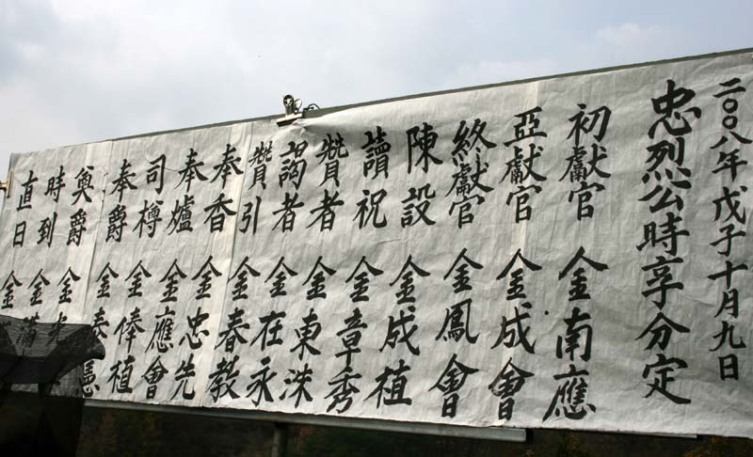 二〇〇八年戊子十月九日
忠烈公時享分定
初獻官 金南應
亞獻官 金成會
終獻官 金鳳會
陳設 金成植
讀祝 金章秀
贊者 金東洙
謁者 金在永
贊引 金春教
奉香 金忠先
奉爐 金應會
司樽 金俸植
奉爵 金泰憲
奠爵 金
時到 金
直日 金